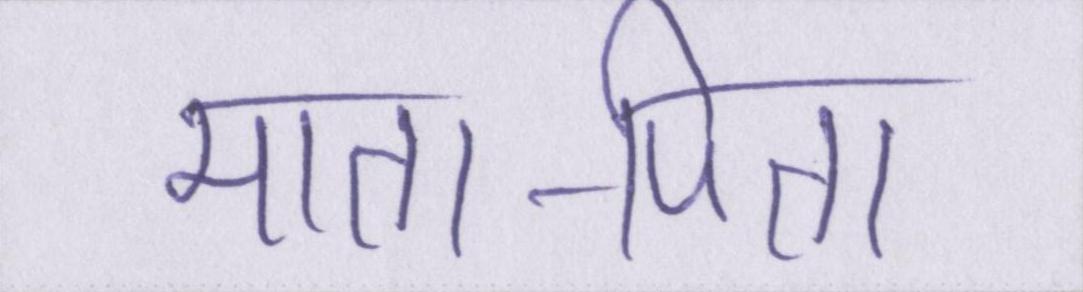 माता-पिता